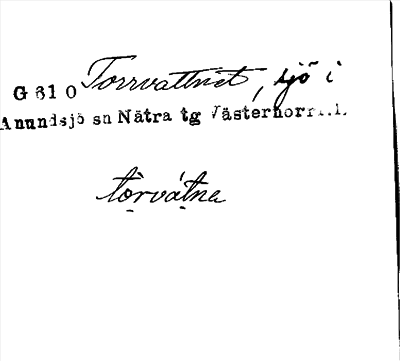 G 61 O Torrvattnet, sjö i
Anundsjö sn Nätra tg Västernorrl.l.
tòrvátnɐ